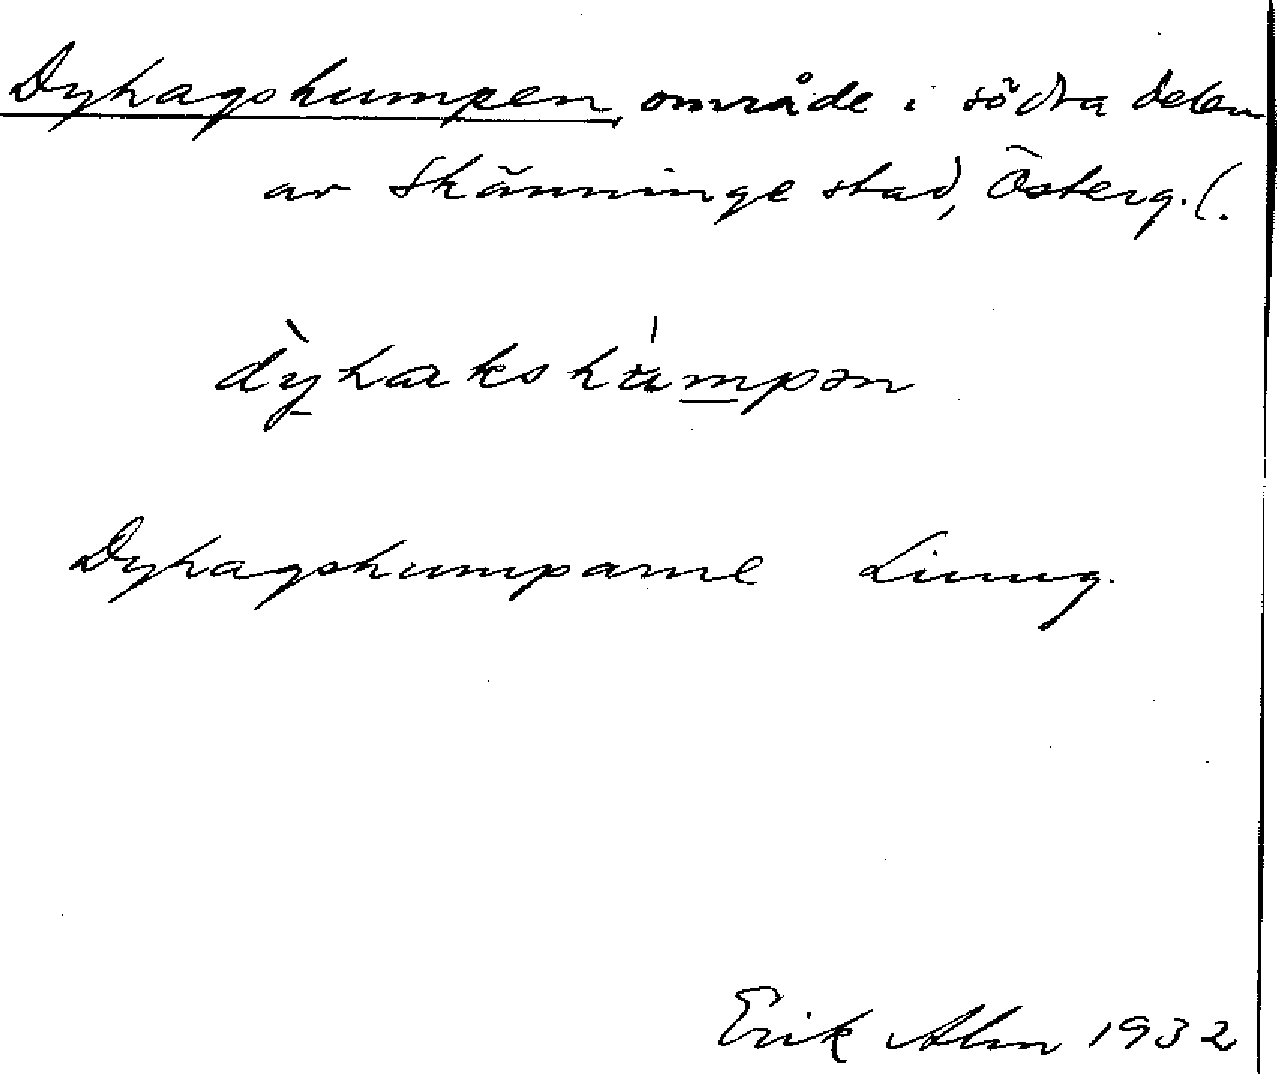 Dyhagshumpen, område i södra delen
av Skänninge stad, Österg. l.
dỳhakshu̍mpən
Dyhagshumparne Ljung.
Erik Alm 1932